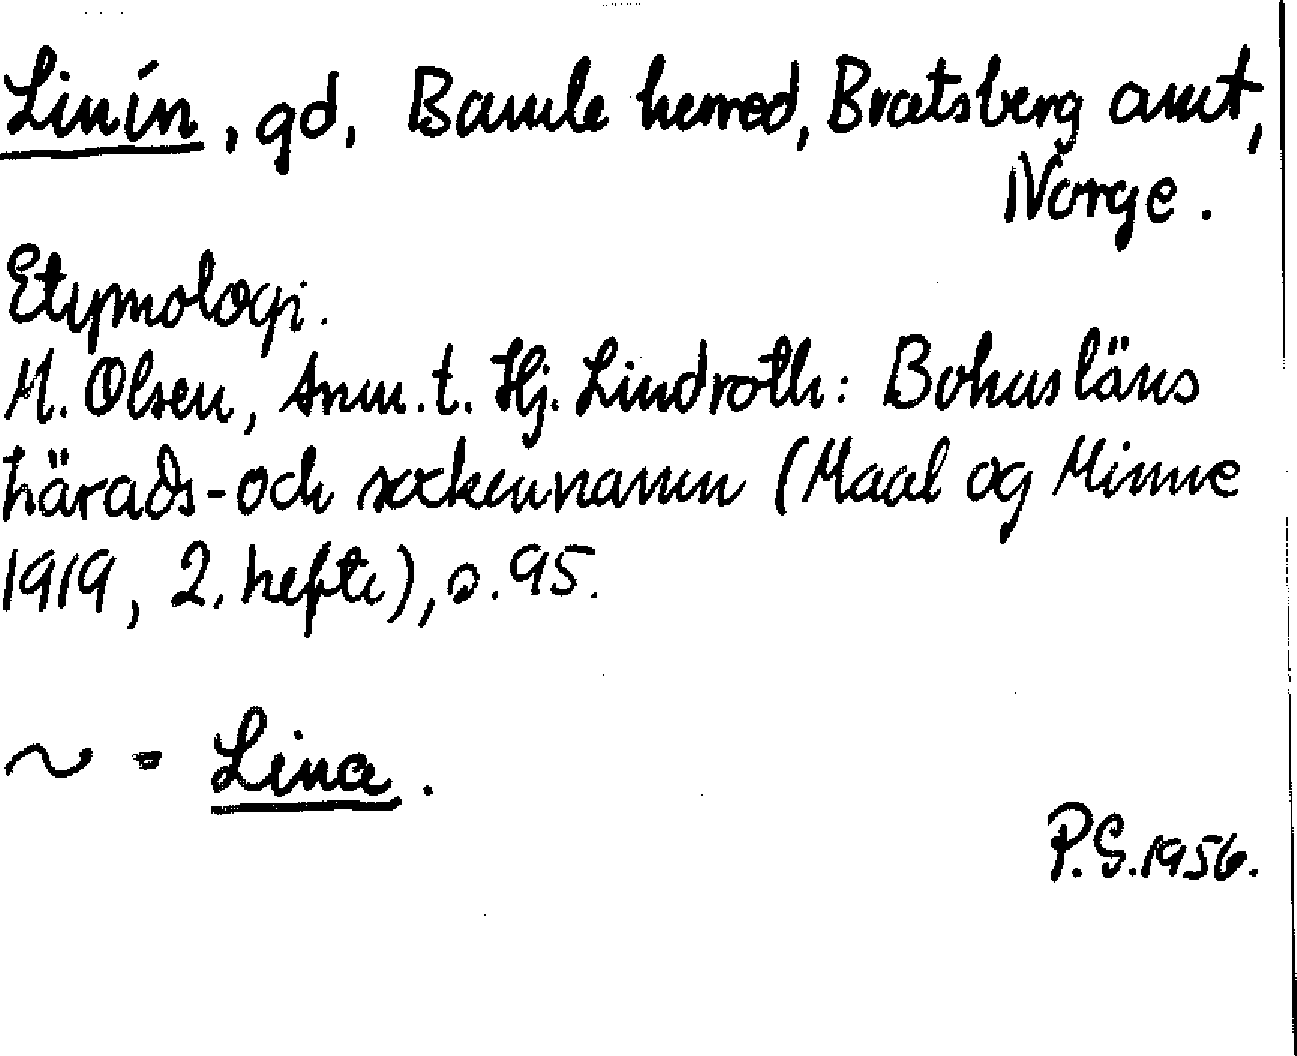 Linín, gd, Bamle herred, Bratsberg amt,
Norge.
Etymologi.
M. Olsen, Anm. t. Hj. Lindroth: Bohusläns
härads- och sockennamn (Maal og Minne
1919, 2. hefte), s. 95.
~ = Lina.
P.S. 1956.